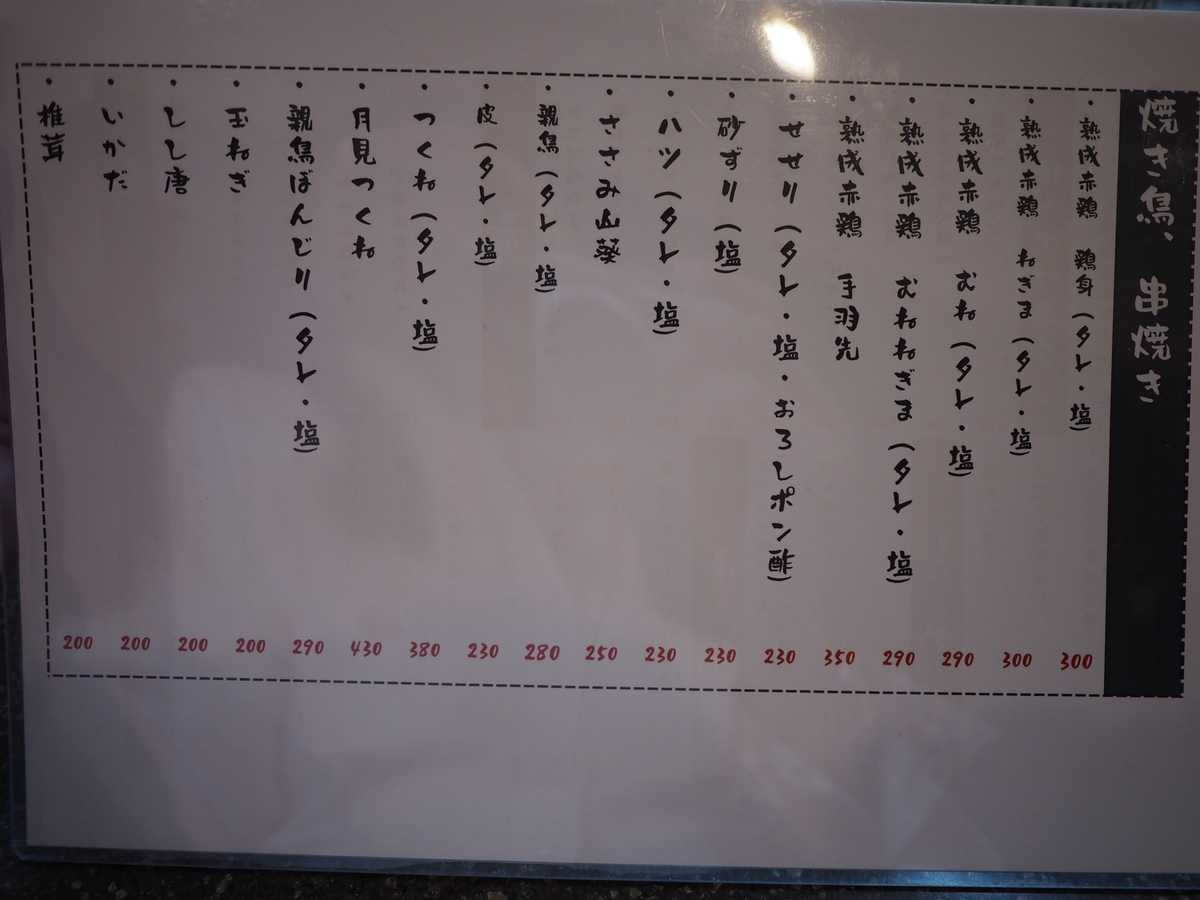 焼き鳥、串焼き
・熟成赤鶏 鶏身(タレ・塩) 300
・熟成赤鶏 ねぎま(タレ・塩) 300
・熟成赤鶏 むね(タレ・塩) 290
・熟成赤鶏 むねねぎま(タレ・塩) 290
・熟成赤鶏 手羽先 350
・せせり(タレ・塩・おろしポン酢) 230
・砂ずり(塩) 230
・ハツ(タレ・塩) 230
・ささみ山葵 250
・親鳥(タレ・塩) 280
・皮(タレ・塩) 230
・つくね(タレ・塩) 380
・月見つくね 430
・親鳥ぼんじり(タレ・塩) 290
・玉ねぎ 200
・しし唐 200
・いかだ 200
・椎茸 200